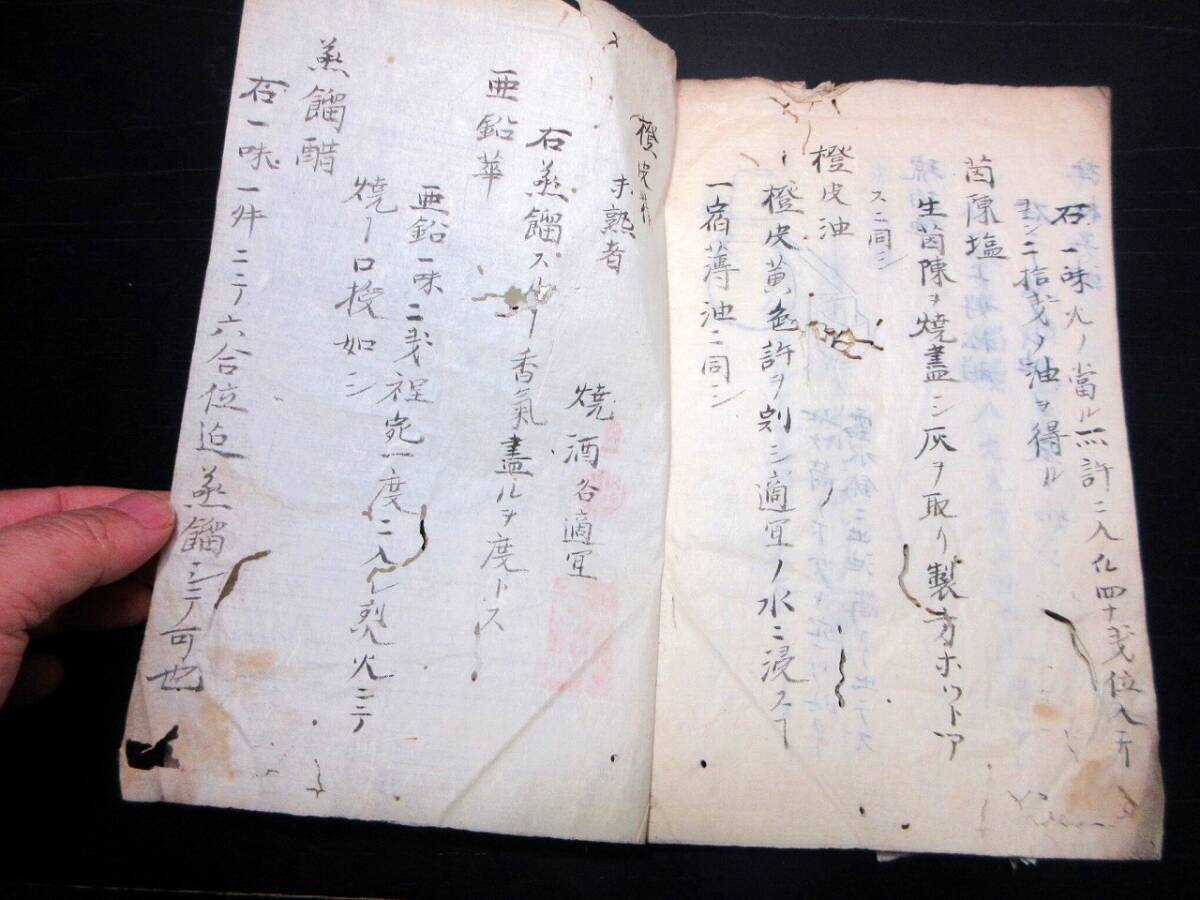 右一味火ノ當ル所許ニ入化四十戔位入テ
ヨシ二拾戔ノ油ヲ得ル
茵陳塩
生茵陳ヲ焼盡シ灰ヲ取リ製方ホットア
スニ同シ
橙皮油
橙皮黄色許ヲ剥シ適宜ノ水ニ浸スヿ
一宿薄油ニ同シ
橙皮
未熟者
焼酒各適宜
右蒸餾スルヿ香氣盡ルヲ度トス
亜鉛華
亜鉛一味二戔程宛一度ニ入レ烈火ニテ
焼ヿ口授如シ
蒸餾醋
右一味一升ニテ六合位迠蒸餾シテ可也